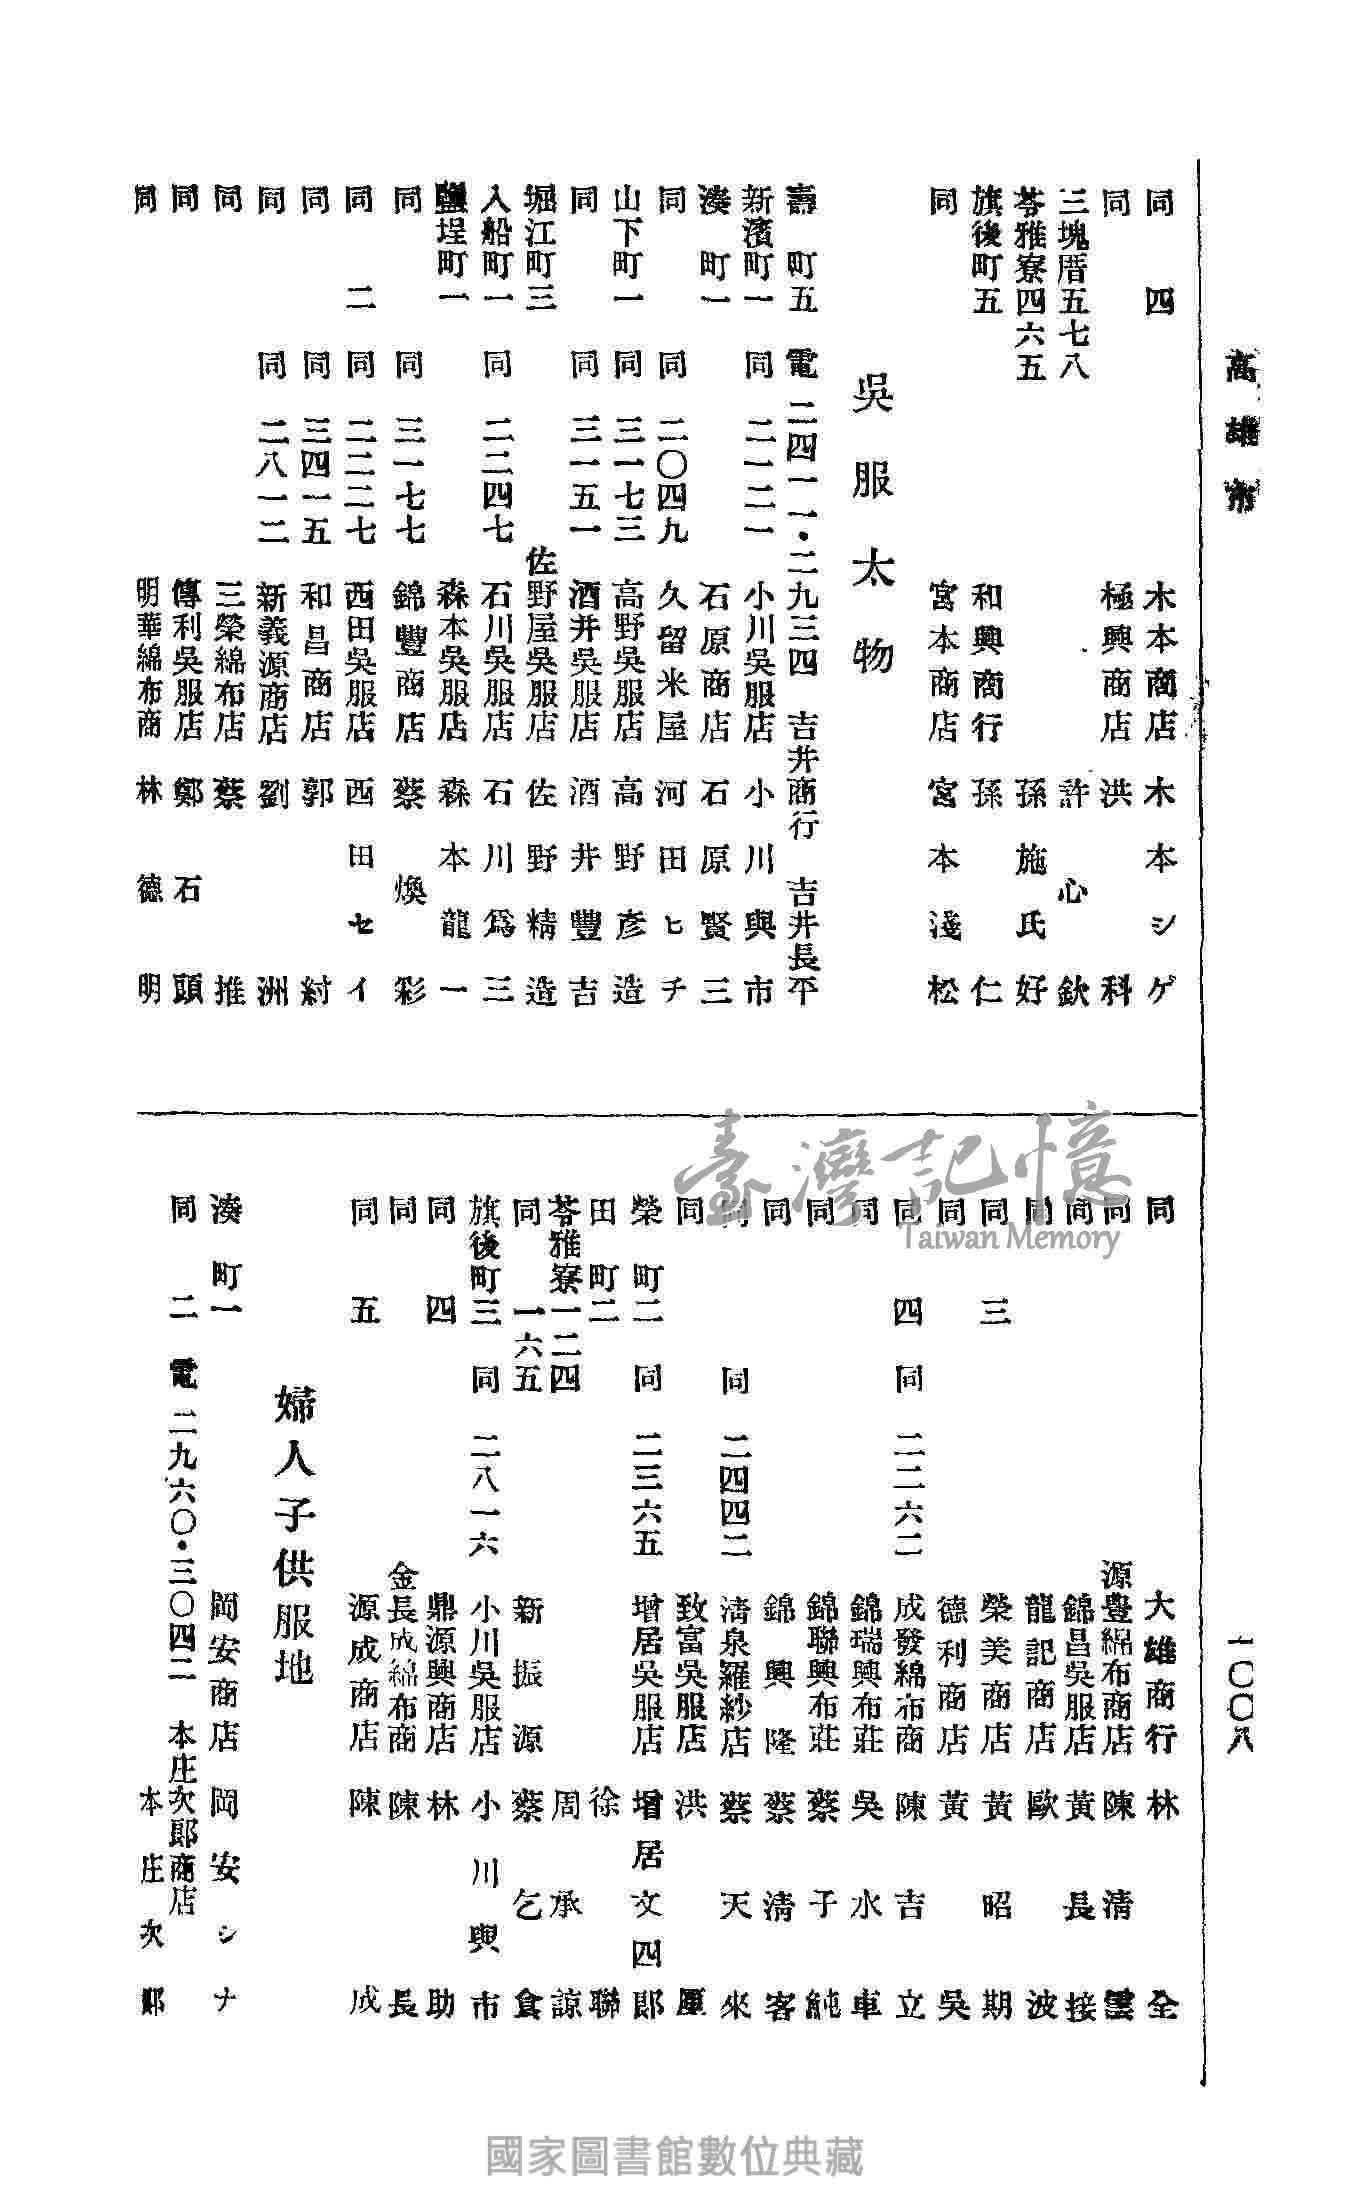 高雄市
同　四　木本商店　木本シゲ
同　極興商店　洪　科
三塊厝五七八　許心欽
苓雅寮四六五　孫施氏好
旗後町五　和興商行　孫　仁
同　宮本商店　宮本淺松
吳服太物
壽町五　電　二四一一・二九三四　吉井商行　吉井長平
新濱町一　同　二一二一　小川吳服店　小川與市
湊町一　石原商店　石原賢三
同　同　二〇四九　久留米屋　河田ヒチ
山下町一　同　三一七三　高野吳服店　高野彥造
同　同　三一五一　酒井吳服店　酒井豐吉
堀江町三　佐野屋吳服店　佐野精造
入船町一　同　二二四七　石川吳服店　石川爲三
鹽埕町一　森本吳服店　森本龍一
同　同　三一七七　錦豐商店　蔡煥彩
同　二　同　二二二七　西田吳服店　西田セイ
同　同　三四一五　和昌商店　郭　紂
同　同　二八一二　新義源商店　劉　洲
同　三榮綿布店　蔡　推
同　傳利吳服店　鄭石頭
同　明華綿布商　林德明
同　大雄商行　林　全
同　源豊綿布商店　陳清雲
同　錦昌吳服店　黃長接
同　龍記商店　歐　波
同　三　榮美商店　黃昭期
同　德利商店　黃　吳
同　四　同　二二六二　成發綿布商　陳吉立
同　錦瑞興布莊　吳水車
同　錦聯興布莊　蔡子純
同　錦興隆　蔡清客
同　同　二四四二　清泉羅紗店　蔡天來
同　致富吳服店　洪　厘
榮町二　同　二三六五　增居吳服店　增居文四郎
田町二　徐　聯
苓雅寮一二四　周承諒
同　一六五　新振源　蔡乞食
旗後町三　同　二八一六　小川吳服店　小川與市
同　四　鼎源興商店　林　助
同　金長成綿布商　陳　長
同　五　源成商店　陳　成
婦人子供服地
湊町一　岡安商店　岡安シナ
同　二　電　二九六〇・三〇四二　本庄次郎商店
本庄次郎
一〇〇八
臺灣記憶
Taiwan Memory
國家圖書館數位典藏